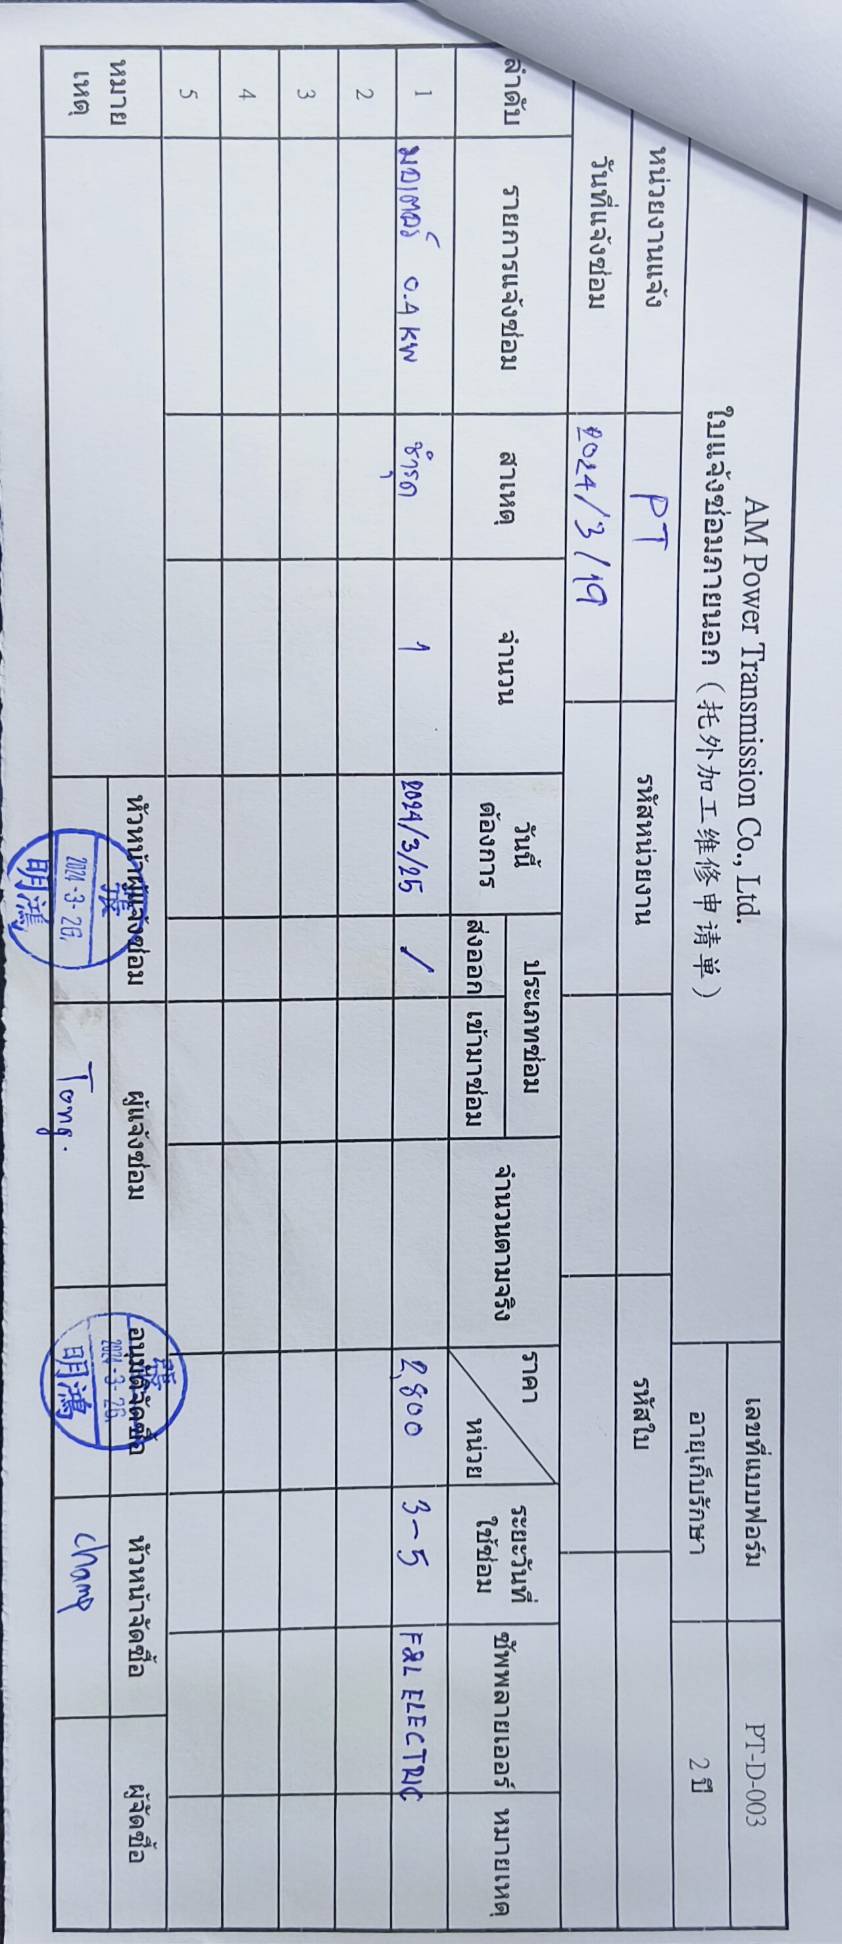 AM Power Transmission Co., Ltd.
ใบแจ้งซ่อมภายนอก (托外加工维修申请单)
เลขที่แบบฟอร์ม PT-D-003
อายุเก็บรักษา 2 ปี
หน่วยงานแจ้ง PT รหัสหน่วยงาน รหัสใบ
วันที่แจ้งซ่อม 2024/3/19
ลำดับ รายการแจ้งซ่อม สาเหตุ จำนวน วันนี้ต้องการ ประเภทซ่อม จำนวนตามจริง ราคา หน่วย ระยะวันที่ใช้ซ่อม ซัพพลายเออร์ หมายเหตุ
ส่งออก เข้ามาซ่อม
1 มอเตอร์ 0.4 KW ชำรุด 1 2024/3/25 / 2,800 3-5 F&L ELECTRIC
2
3
4
5
หมายเหตุ หัวหน้าผู้แจ้งซ่อม ผู้แจ้งซ่อม อนุมัติจัดซื้อ หัวหน้าจัดซื้อ ผู้จัดซื้อ
張 2024-3-26. 明鴻 Tong. 張 2024-3-26. 明鴻 champ